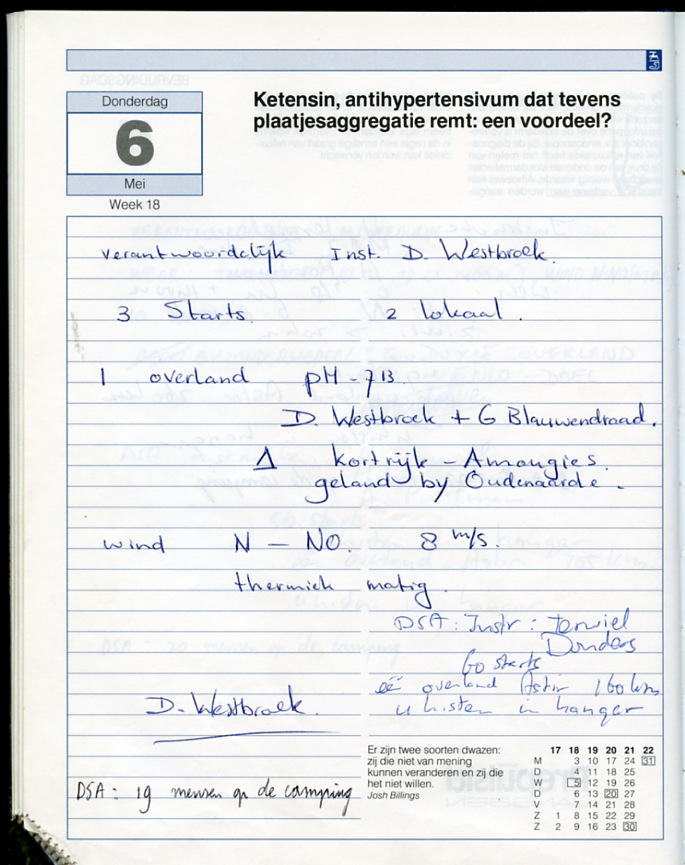 Donderdag
6
Mei
Week 18
Ketensin, antihypertensivum dat tevens
plaatjesaggregatie remt: een voordeel?
verantwoordelijk Inst. D. Westbroek.
3 Starts. 2 lokaal.
1 overland pH-713.
D. Westbroek + G Blauwendraad.
Δ Kortrijk - Amougies.
geland by Oudenaarde.
wind N - NO. 8 m/s.
thermiek matig.
DSA: Instr: Terwiel
Donders
60 starts
eé overland Astir 160 km
4 kisten in hanger
D. Westbroek.
DSA: 19 mensen op de camping
Er zijn twee soorten dwazen:
zij die niet van mening
kunnen veranderen en zij die
het niet willen.
Josh Billings
17 18 19 20 21 22
M 3 10 17 24 31
D 4 11 18 25
W 5 12 19 26
D 6 13 20 27
V 7 14 21 28
Z 1 8 15 22 29
Z 2 9 16 23 30